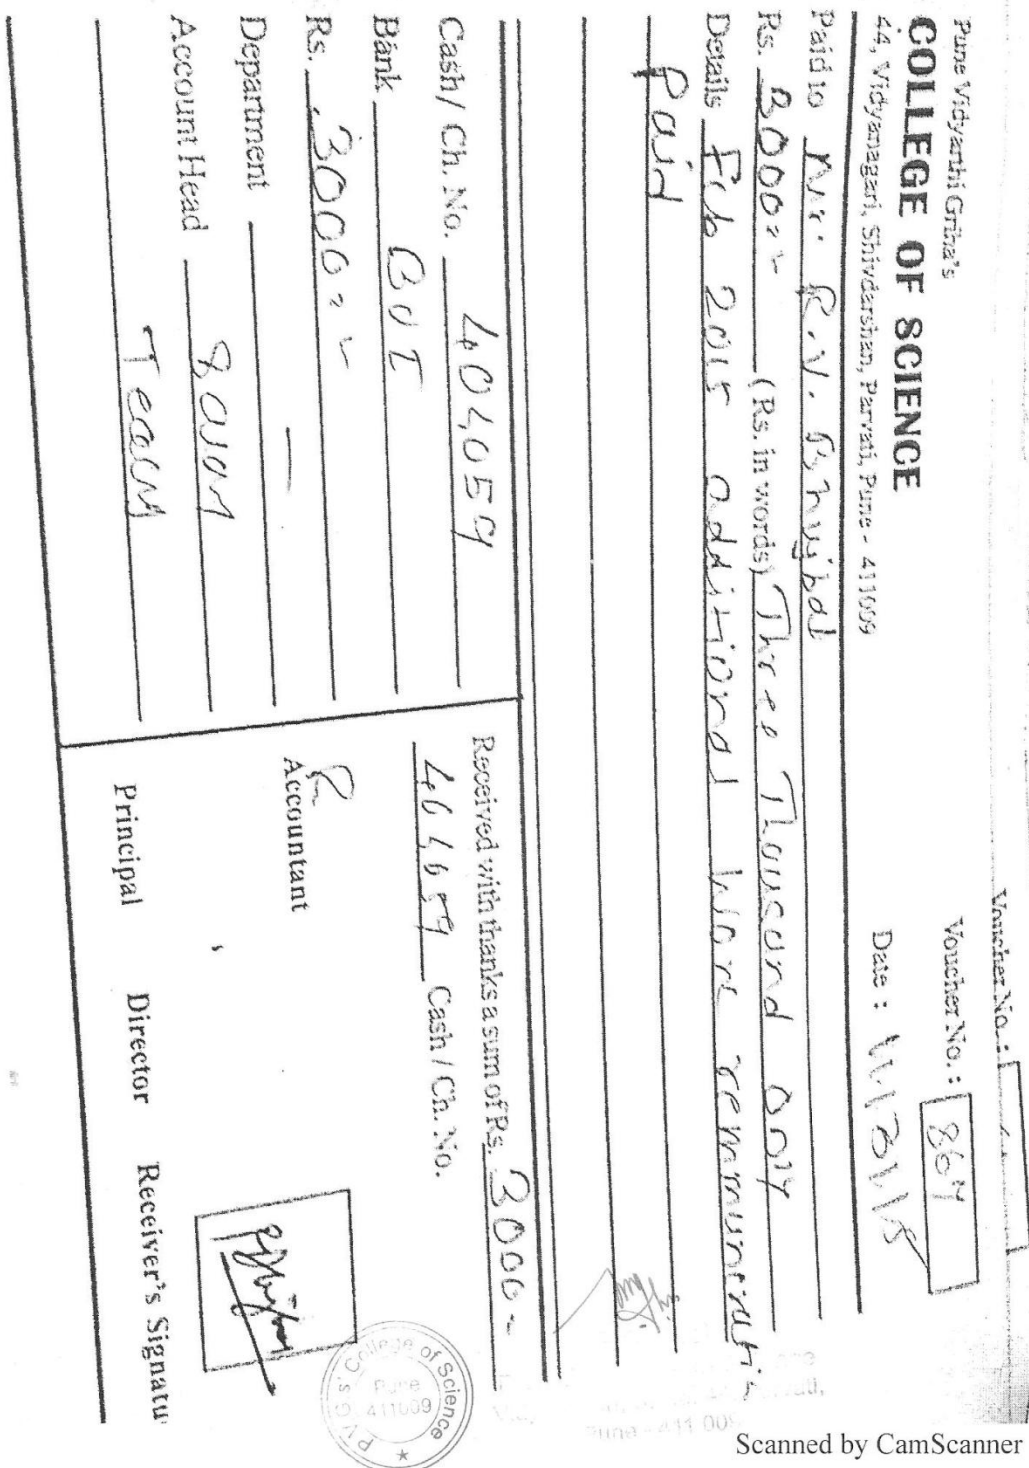 Voucher No. :
Pune Vidyarthi Griha's
Voucher No. : 867
COLLEGE OF SCIENCE
44, Vidyanagari, Shivdarshan, Parvati, Pune - 411009
Date :
Paid to Mr. R.V. Bhujbal
Rs. 3000=- (Rs. in words) Three Thousand only
Details Feb 2015 additional work
Paid
Cash/ Ch. No. 404059
Bank BOI
Rs. 3000=-
Department —
Account Head
Received with thanks a sum of Rs. 3000-
Cash / Ch. No.
Accountant
Principal Director Receiver's Signatu
PVG's College of Science
Pune
411009
Pune - 411 00
Scanned by CamScanner